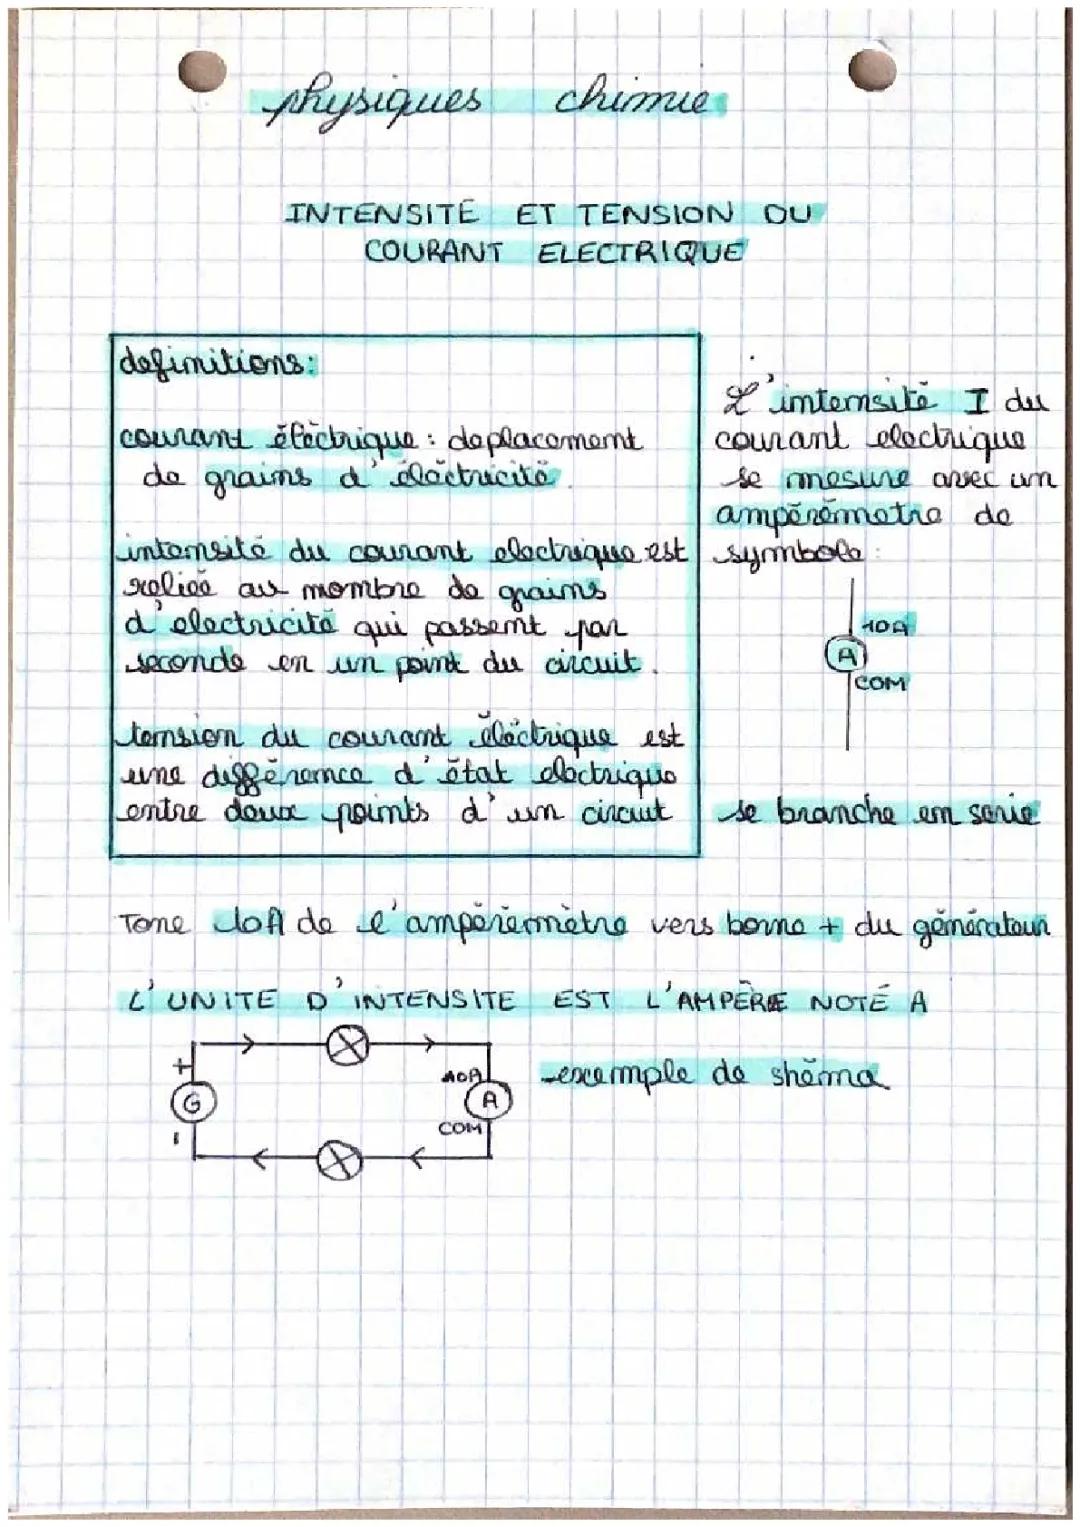 physiques chimie
INTENSITÉ ET TENSION DU
COURANT ELECTRIQUE
definitions:
courant électrique : deplacement
de grains d'éléctricité.
intensité du courant electrique est
reliée au nombre de grains
d'electricité qui passent par
seconde en un point du circuit.
tension du courant éléctrique est
une différence d'état electrique
entre deux points d'un circuit
L'intensité I du
courant electrique
se mesure avec un
ampérèmetre de
symbole :
10A
A
COM
se branche en serie
Tone 10A de l'ampérèmètre vers borne + du générateur
L'UNITE D'INTENSITE EST L'AMPÈRE NOTÉ A
exemple de shéma
+
G
-
10A
A
COM